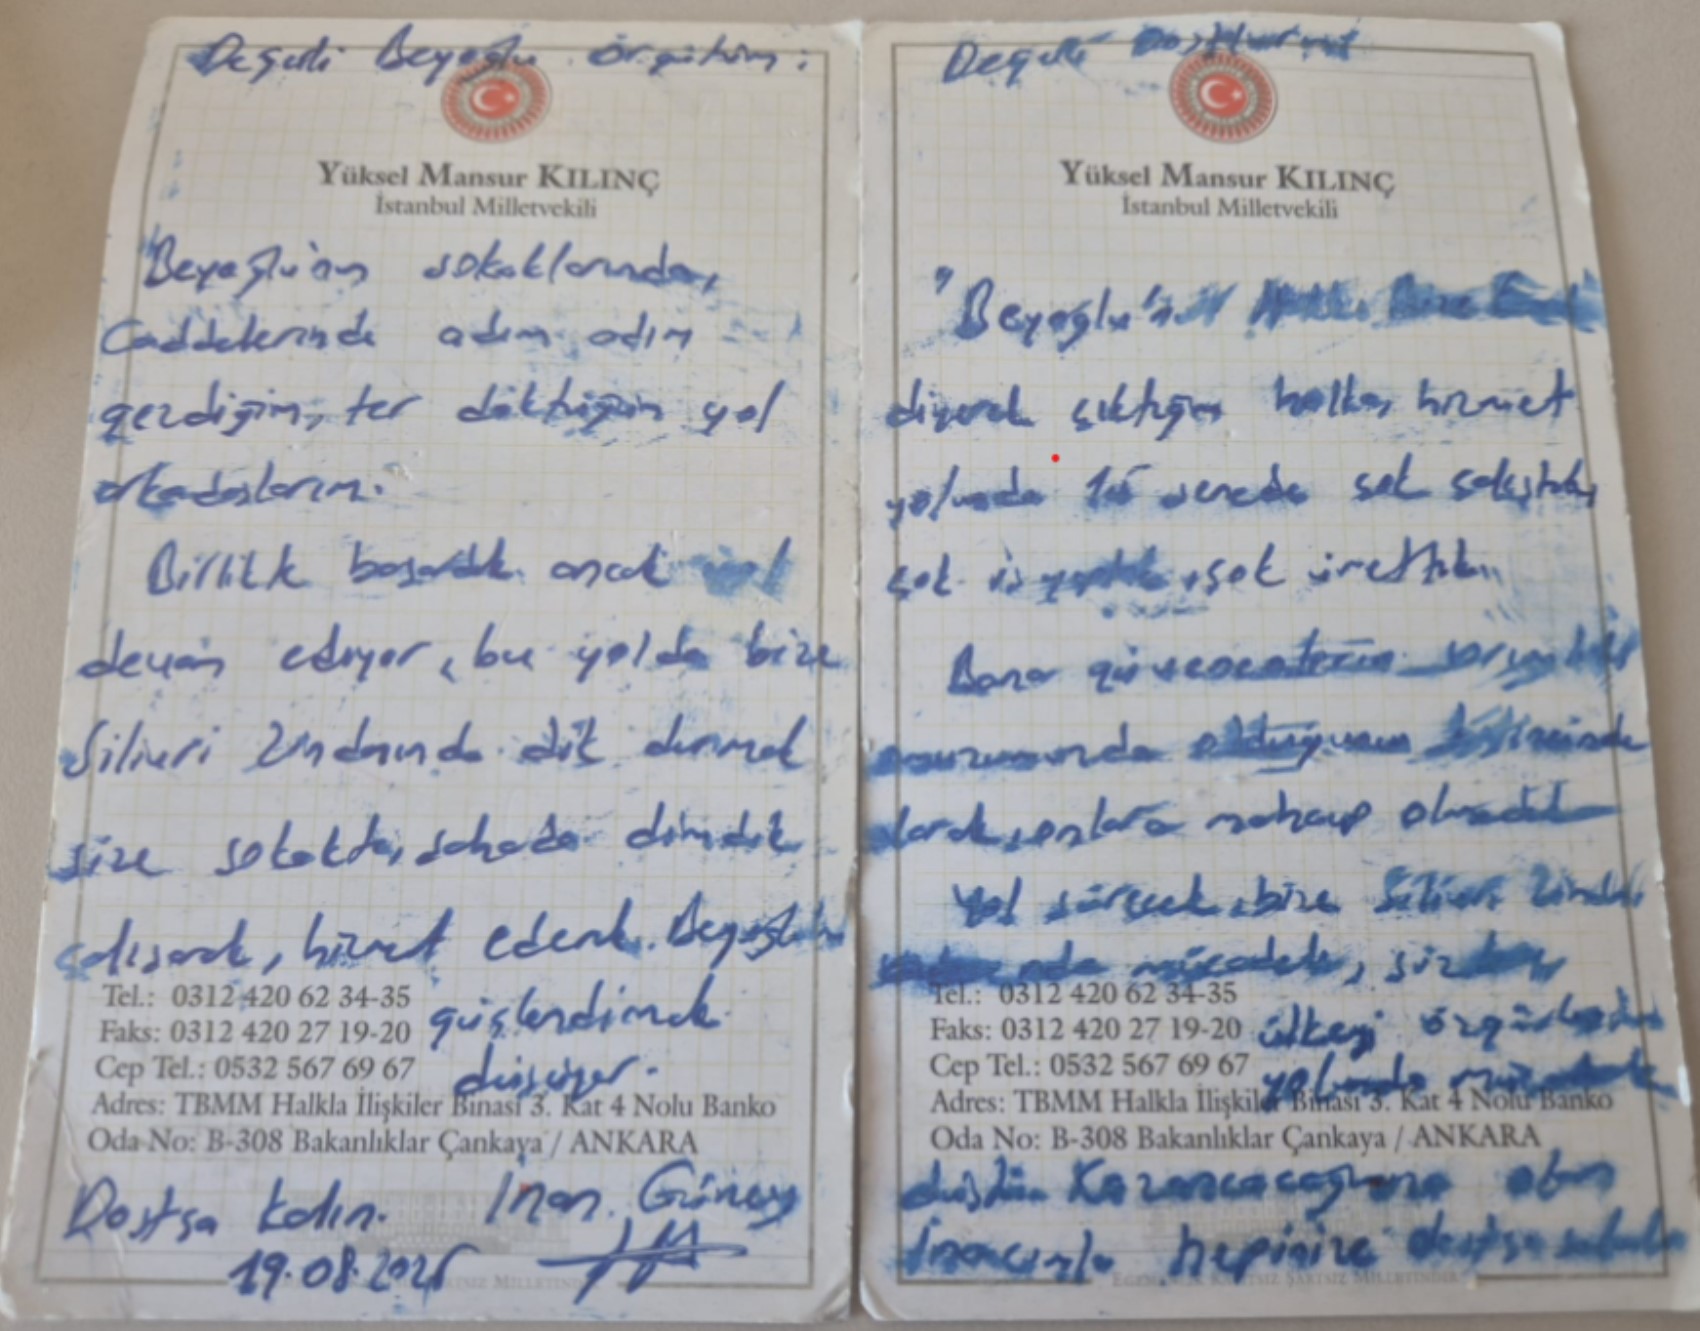 Değerli Beyoğlu Örgütüm:
Yüksel Mansur KILINÇ
İstanbul Milletvekili
"Beyoğlu'nun sokaklarında,
Caddelerinde adım adım
gezdiğim, ter döktüğüm yol
arkadaşlarım.
Birlikte başardık ancak yol
devam ediyor, bu yolda bize
Silivri Zindanında dik durmak
size sokakta, sahada dimdik
çalışarak, hizmet ederek Beyoğlu'nu
Tel.: 0312 420 62 34-35
güçlendirmek
Faks: 0312 420 27 19-20
düşüyor.
Cep Tel.: 0532 567 69 67
Adres: TBMM Halkla İlişkiler Binası 3. Kat 4 Nolu Banko
Oda No: B-308 Bakanlıklar Çankaya / ANKARA
Dostça kalın. İnan Güney
19.08.2025
Değerli Dostlarım
Yüksel Mansur KILINÇ
İstanbul Milletvekili
"Beyoğlu'
diyerek çıktığım halka hizmet
yolunda senede çok çalıştık,
çok iş yaptık, çok ürettik.
Bana güvenenlerin
omuzumda olduğunun bilincinde
olarak, onlara mahcup olmadık
Yol sürecek, bize Silivri
mücadele,
Tel.: 0312 420 62 34-35
Faks: 0312 420 27 19-20
ülkeyi
Cep Tel.: 0532 567 69 67
yolunda
Adres: TBMM Halkla İlişkiler Binası 3. Kat 4 Nolu Banko
Oda No: B-308 Bakanlıklar Çankaya / ANKARA
Kazanacağımıza olan
İnancımla hepinize
EGEMENLİK KAYITSIZ ŞARTSIZ MİLLETİNDİR